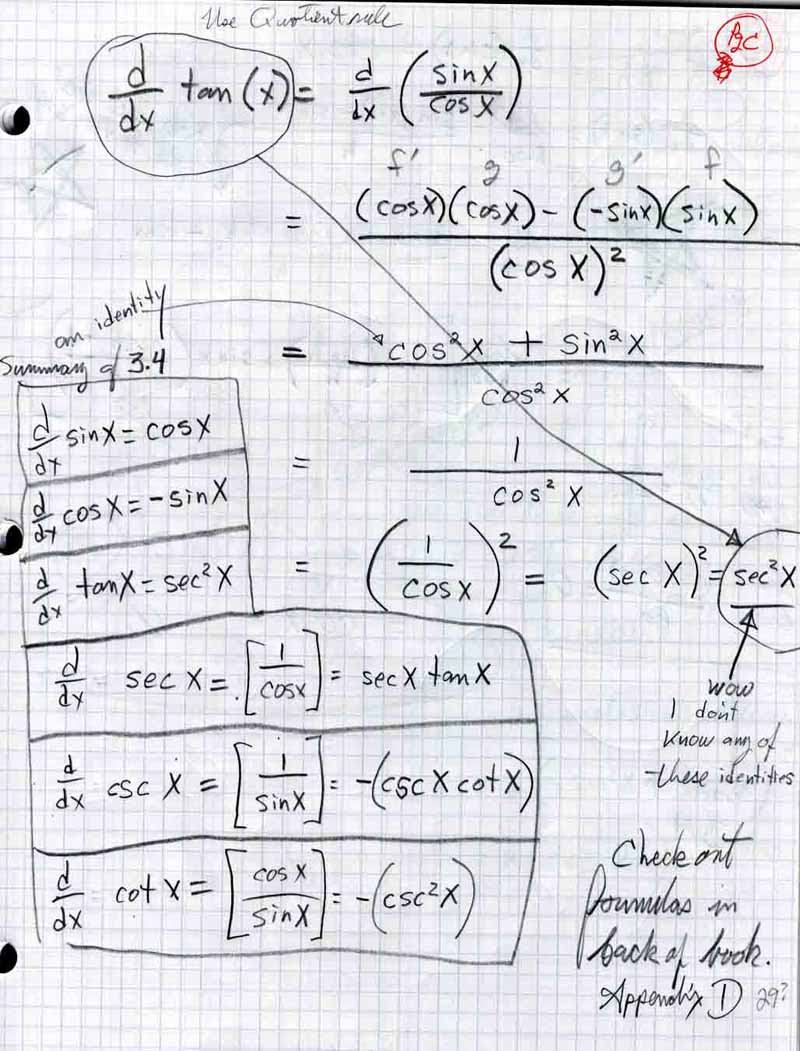 Use Quotient rule
BC
d/dx tan(x) = d/dx (sinx/cosx)
f' g g' f
= (cosx)(cosx) - (-sinx)(sinx) / (cos x)²
an identity
= cos²x + sin²x / cos²x
Summary of 3.4
d/dx sinx = cosx
= 1 / cos²x
d/dx cosx = -sinx
d/dx tanx = sec²x
= (1/cosx)² = (sec x)² = sec²x
d/dx sec x = [1/cosx] = secx tanx
wow
I don't
know any of
these identities
d/dx csc x = [1/sinx] = -(csc x cot x)
d/dx cot x = [cosx/sinx] = -(csc²x)
Check out
formulas in
back of book.
Appendix D 29?